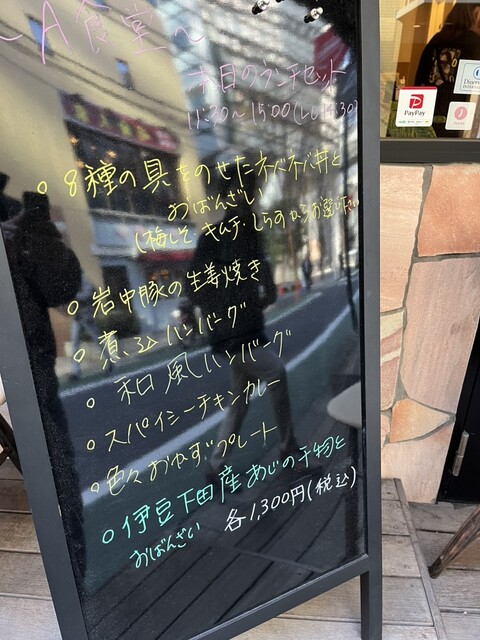 ~A食堂~
本日のランチセット
11:30~15:00(L.O 14:30)
○8種の具をのせたネバネバ丼と
おばんざい
(梅しそ・キムチ・しらすからお選び下さい
○岩中豚の生姜焼き
○煮込ハンバーグ
○和風ハンバーグ
○スパイシーチキンカレー
○色々おかずプレート
○伊豆下田産あじの干物と
おばんざい 各1,300円(税込)
PayPay